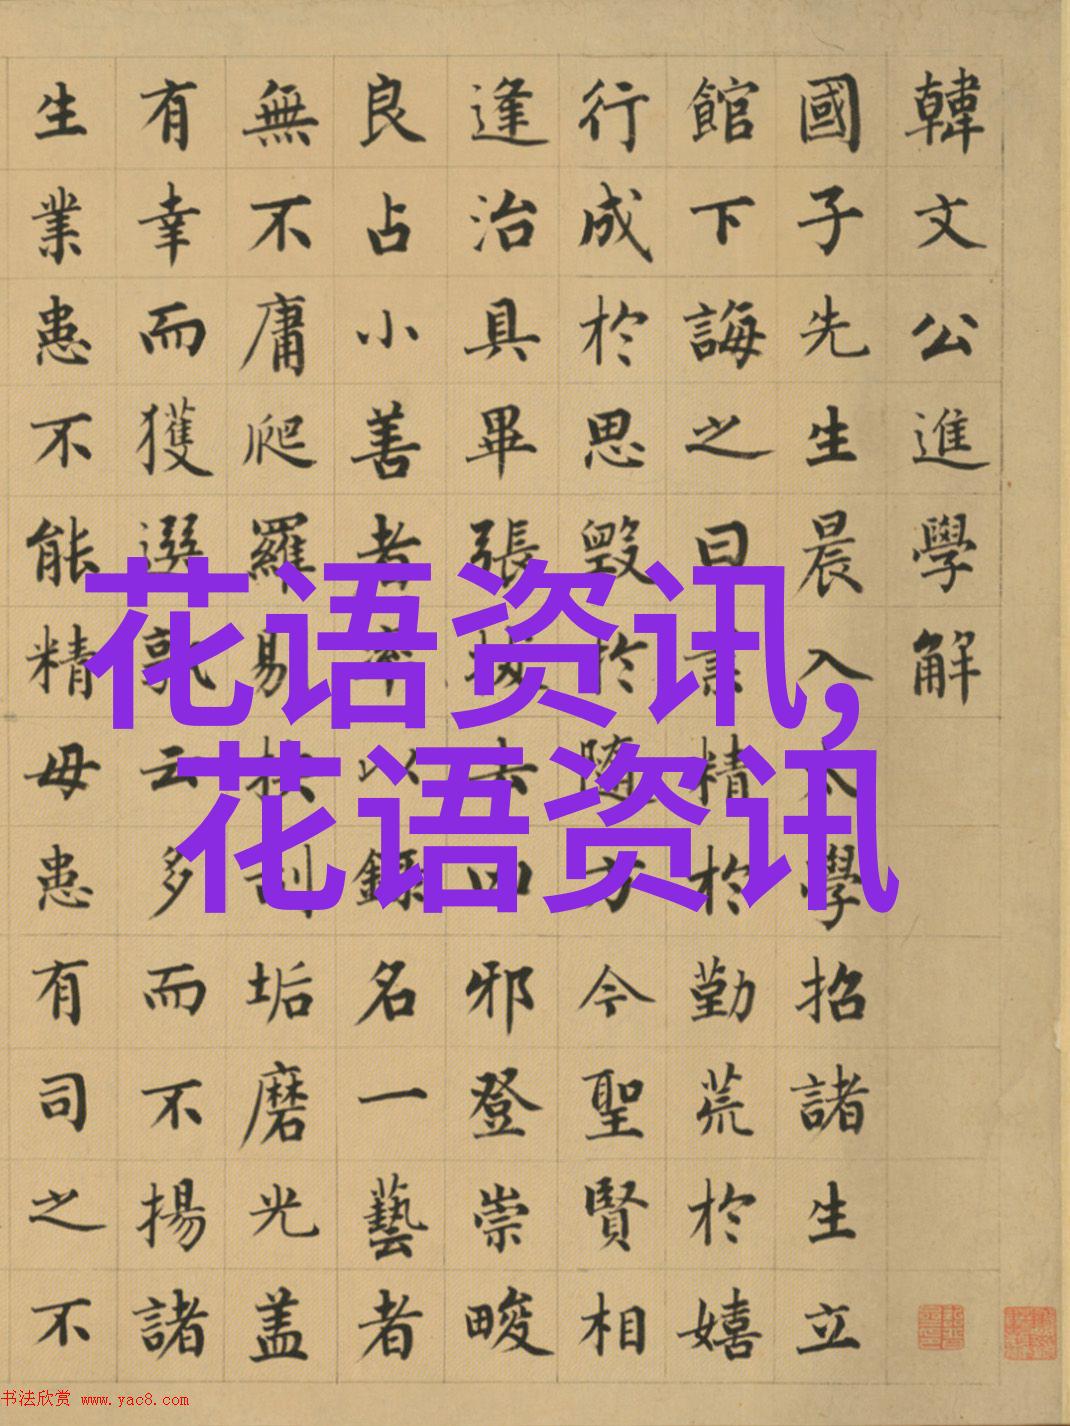 韓文公進學解
國子先生晨入太學招諸生立
館下誨之曰業精於勤荒於嬉
行成於思毀於隨方今聖賢相
逢治具畢張拔去凶邪登崇畯
良占小善者率以錄名一藝者
無不庸爬羅剔抉刮垢磨光盖
有幸而獲選孰云多而不揚諸
生業患不能精毋患有司之不
花语资讯,
花语资讯
书法欣赏 www.yac8.com